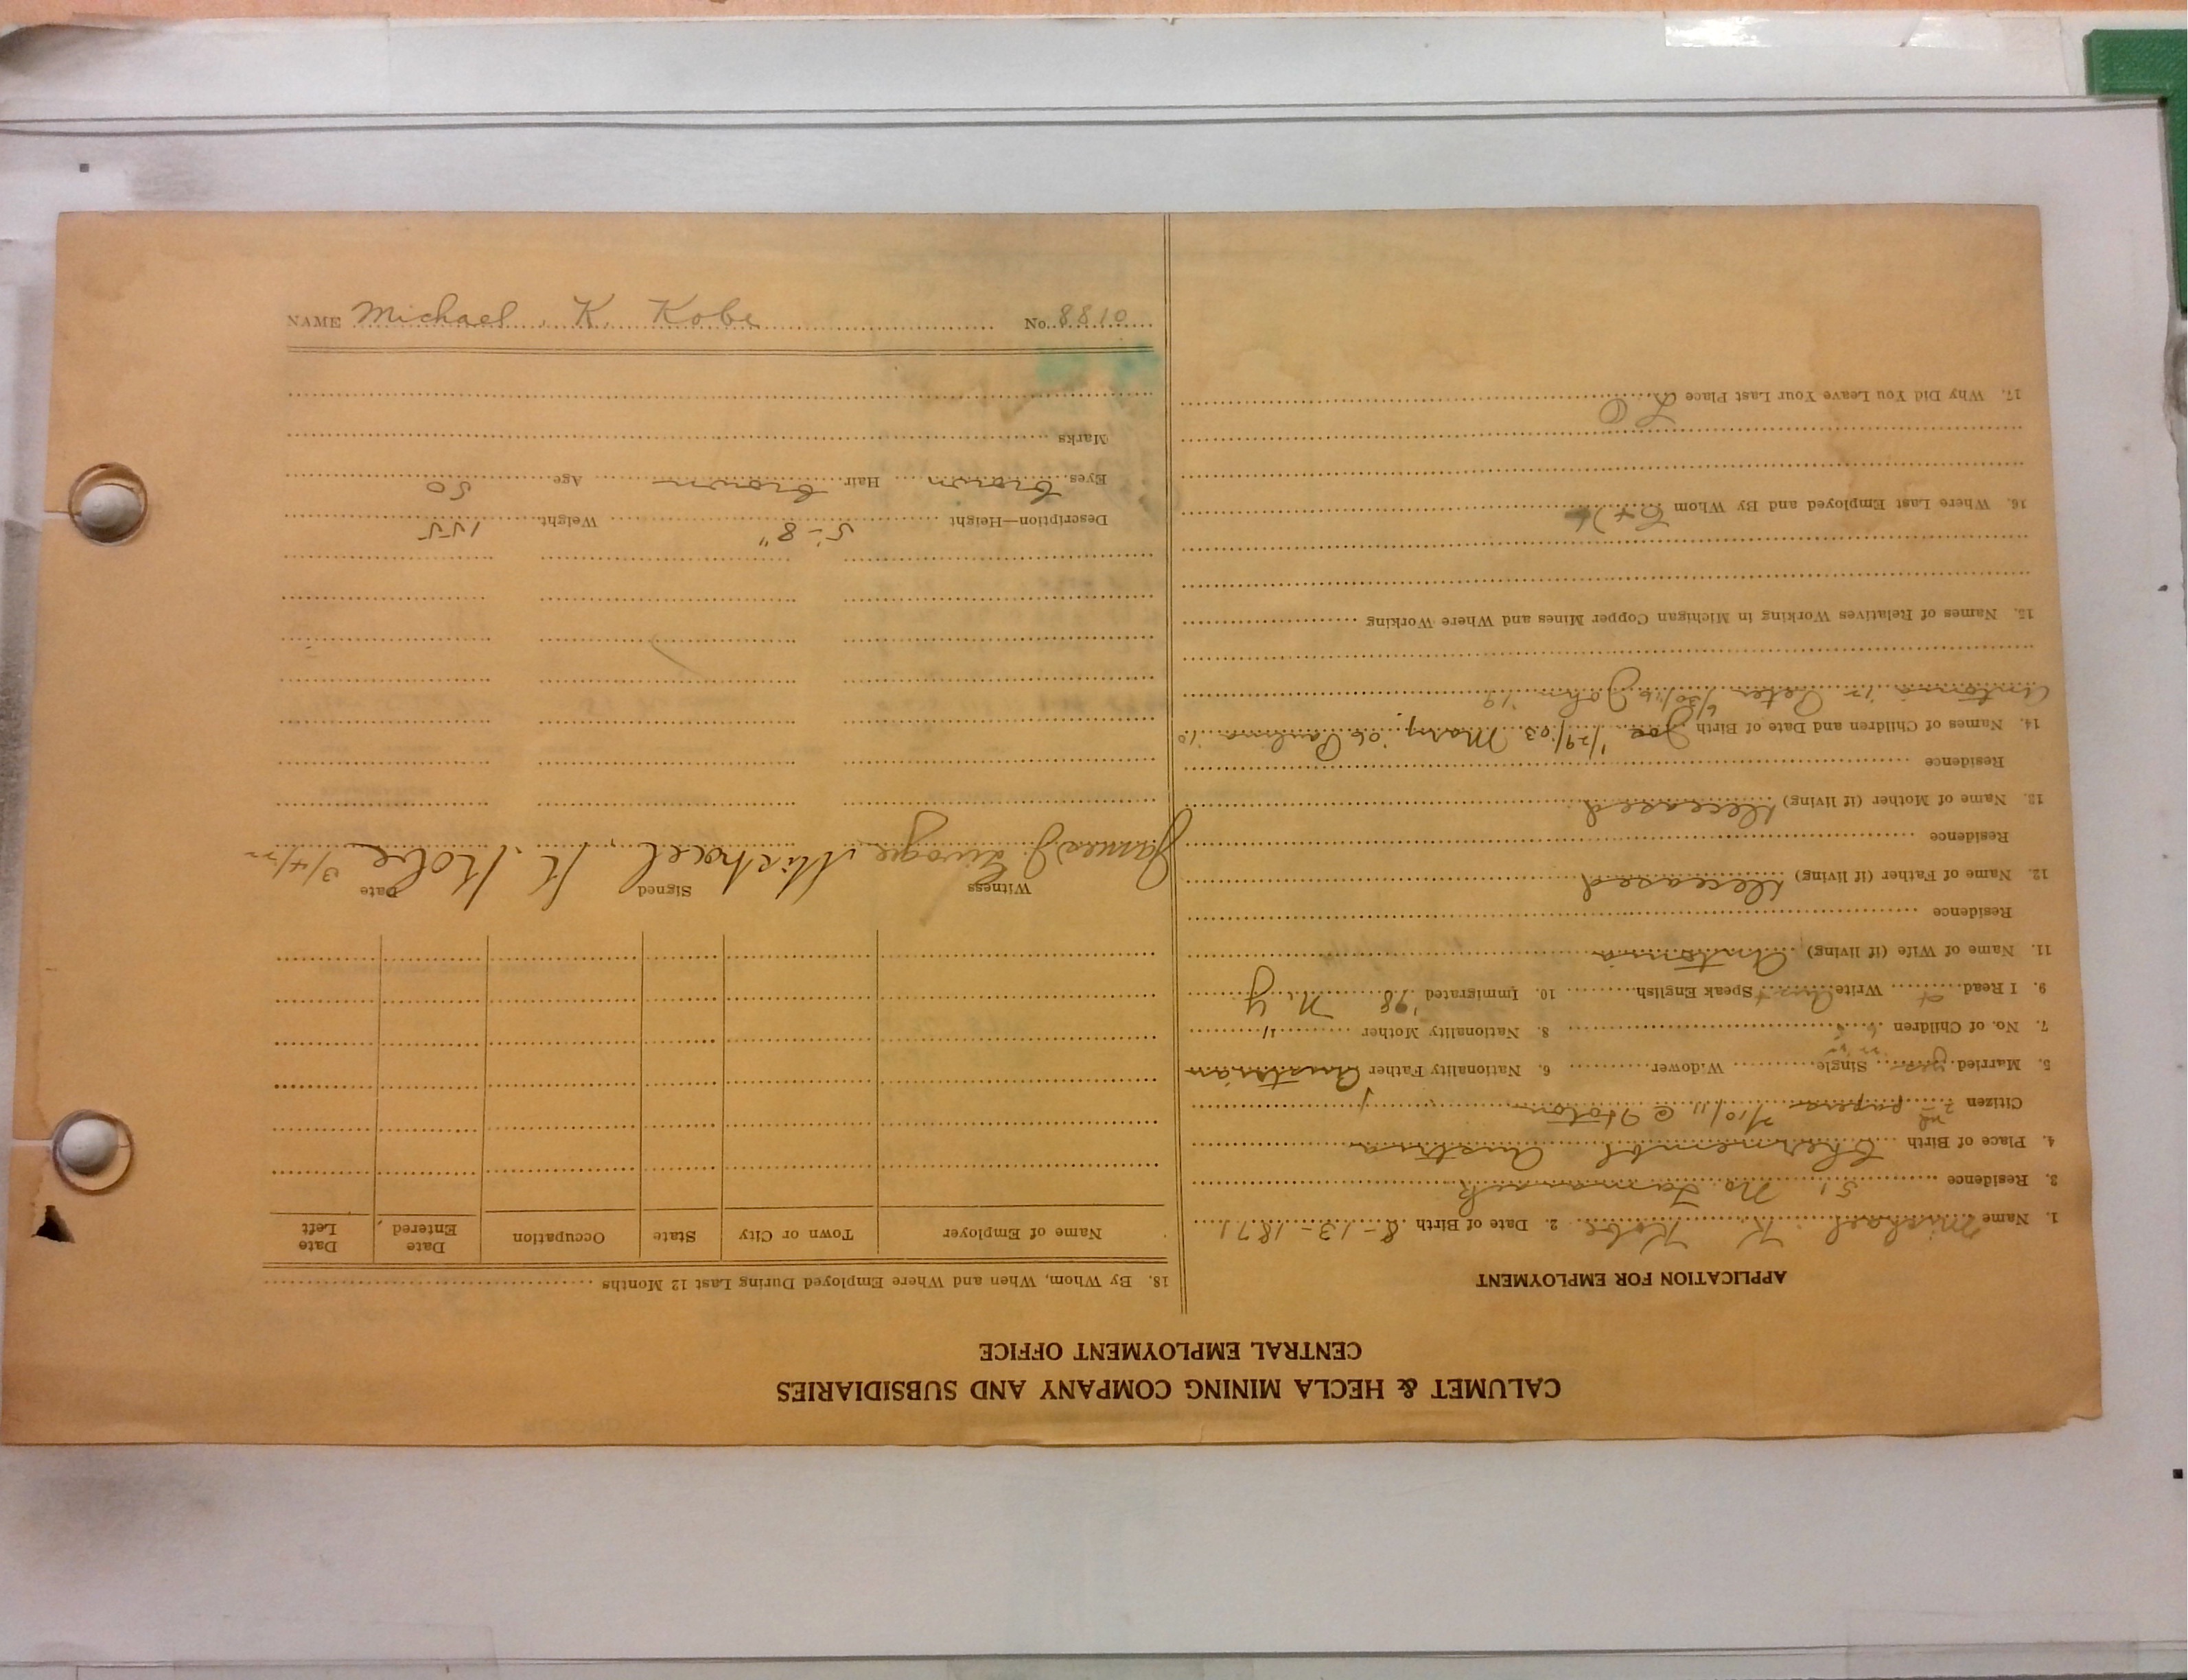 CALUMET & HECLA MINING COMPANY AND SUBSIDIARIES
CENTRAL EMPLOYMENT OFFICE
APPLICATION FOR EMPLOYMENT
1. Name Michael K. Kobe 2. Date of Birth 8-13-1871
3. Residence 51 No. Tamarack
4. Place of Birth Chernembl Austria
Citizen 2nd papers 2/10/11 @ Hoton
5. Married yes Single Widower 6. Nationality Father Austrian
7. No. of Children 6 8. Nationality Mother "
9. I Read + Write Aust Speak English 10. Immigrated '98 N.Y
11. Name of Wife (if living) Antonia
Residence
12. Name of Father (if living) Deceased
Residence
13. Name of Mother (if living) Deceased
Residence
14. Names of Children and Date of Birth Joe 1/29/03 Mary '06 Paulina '10
Antonia '12 Peter 6/30/16 John '19
15. Names of Relatives Working in Michigan Copper Mines and Where Working
16. Where Last Employed and By Whom C + H
17. Why Did You Leave Your Last Place
L O
18. By Whom, When and Where Employed During Last 12 Months
Name of Employer Town or City State Occupation Date Entered Date Left
Witness Signed Date
James J. Michael K. Kobe 3/4/22
Description—Height 5'-8" Weight 155
Eyes brown Hair brown Age 50
Marks
NAME Michael K. Kobe No. 8810